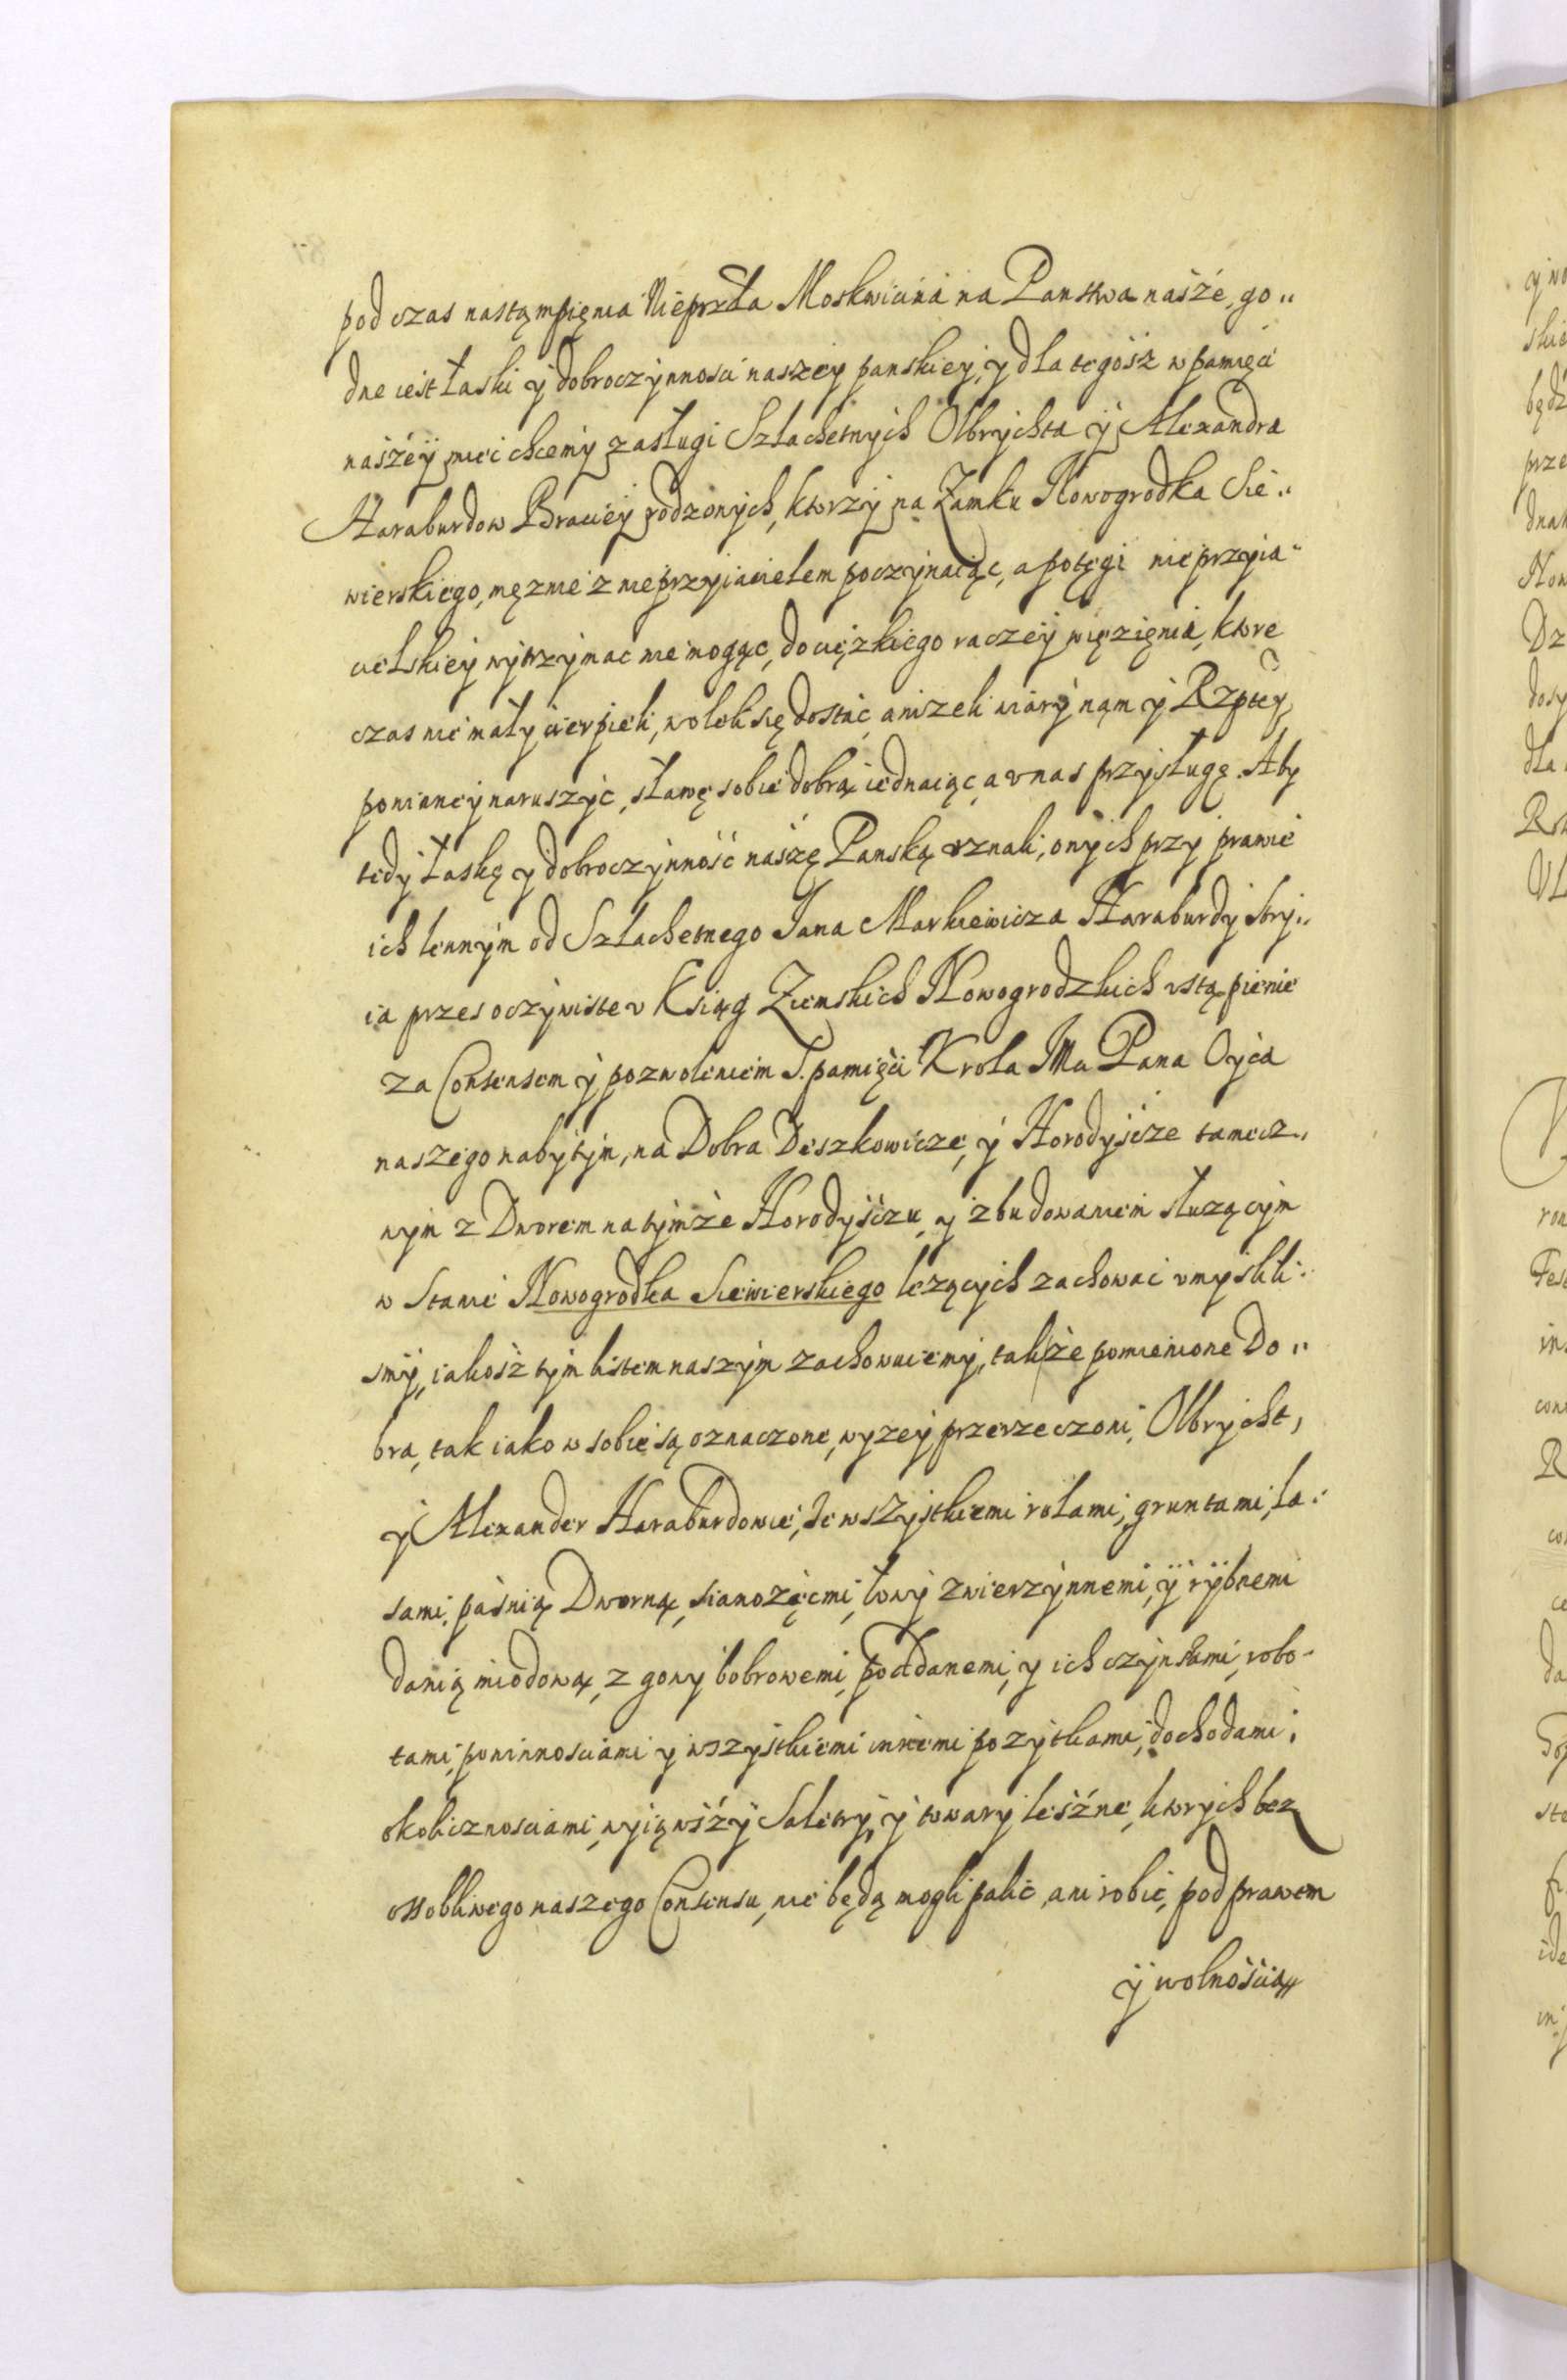 pod czas nastąmpięnia Nieprzła Moskwicina na Panstwa nasze, go„
dne iest Łaski y dobroczynnosci naszey panskiey, y dla tegosz w pamięci
naszey miec chcemy zasługi Szlachetnych Olbrychta y Alexandra
Haraburdow Braciey rodzonych, ktorzy na Zamku Nowogrodka Sie„
wierskiego, męznie z nieprzyiacielem poczynaiąc, a potęgi nieprzyia„
cielskiey wytrzymac nie mogąc, do cięzkiego raczey więzięnia, ktore
czas nie mały cierpieli, woleli się dostac, anizeli wiary nąm y Rzptey
poniancy naruszyc, sławę sobie dobrą iednaiąc, a v nas przysługę. Aby
tedy Łaskę y dobroczynność naszę Panską vznali, onych przy prawie
ich lennym od Szlachetnego Jana Markiewicza Haraburdy stry„
ia przes oczywiste v Ksiąg Ziemskich Nowogrodzkich vstąpienie
za Consensem y pozwoleniem S. pamięci Krola JMci Pana Oyca
naszego nabytym, na Dobra Deszkowicze, y Horodyscze tamecz„
nym z Dworem na tymze Horodysczu, y z budowaniem słuzącym
w Stanie Nowogrodka Siewierskiego lezących zachowac vmyslili„
smy, iakosz tym listem naszym zachowuiemy, tak/ze pomienione Do„
bra, tak iako w sobie są oznaczone, wyzey przerzeczoni, Olbrycht,
y Alexander Haraburdowie, ze wszystkiemi rolami, gruntami, la„
sami, pasnią Dworną, sianozęcmi, łowy zwierzynnemi, y rybnemi
danią miodową, z gony bobrowemi, poddanemi, y ich czynszami, robo„
tami, powinnosciami y wszystkiemi innemi pozytkami, dochodami,
okolicznosciami, wyiąwszy Saletry, y towary lesne, ktorych bez
ossobliwego naszego Consensu, nie będą mogli palic, ani robic, pod prawem
y wolnoscią„